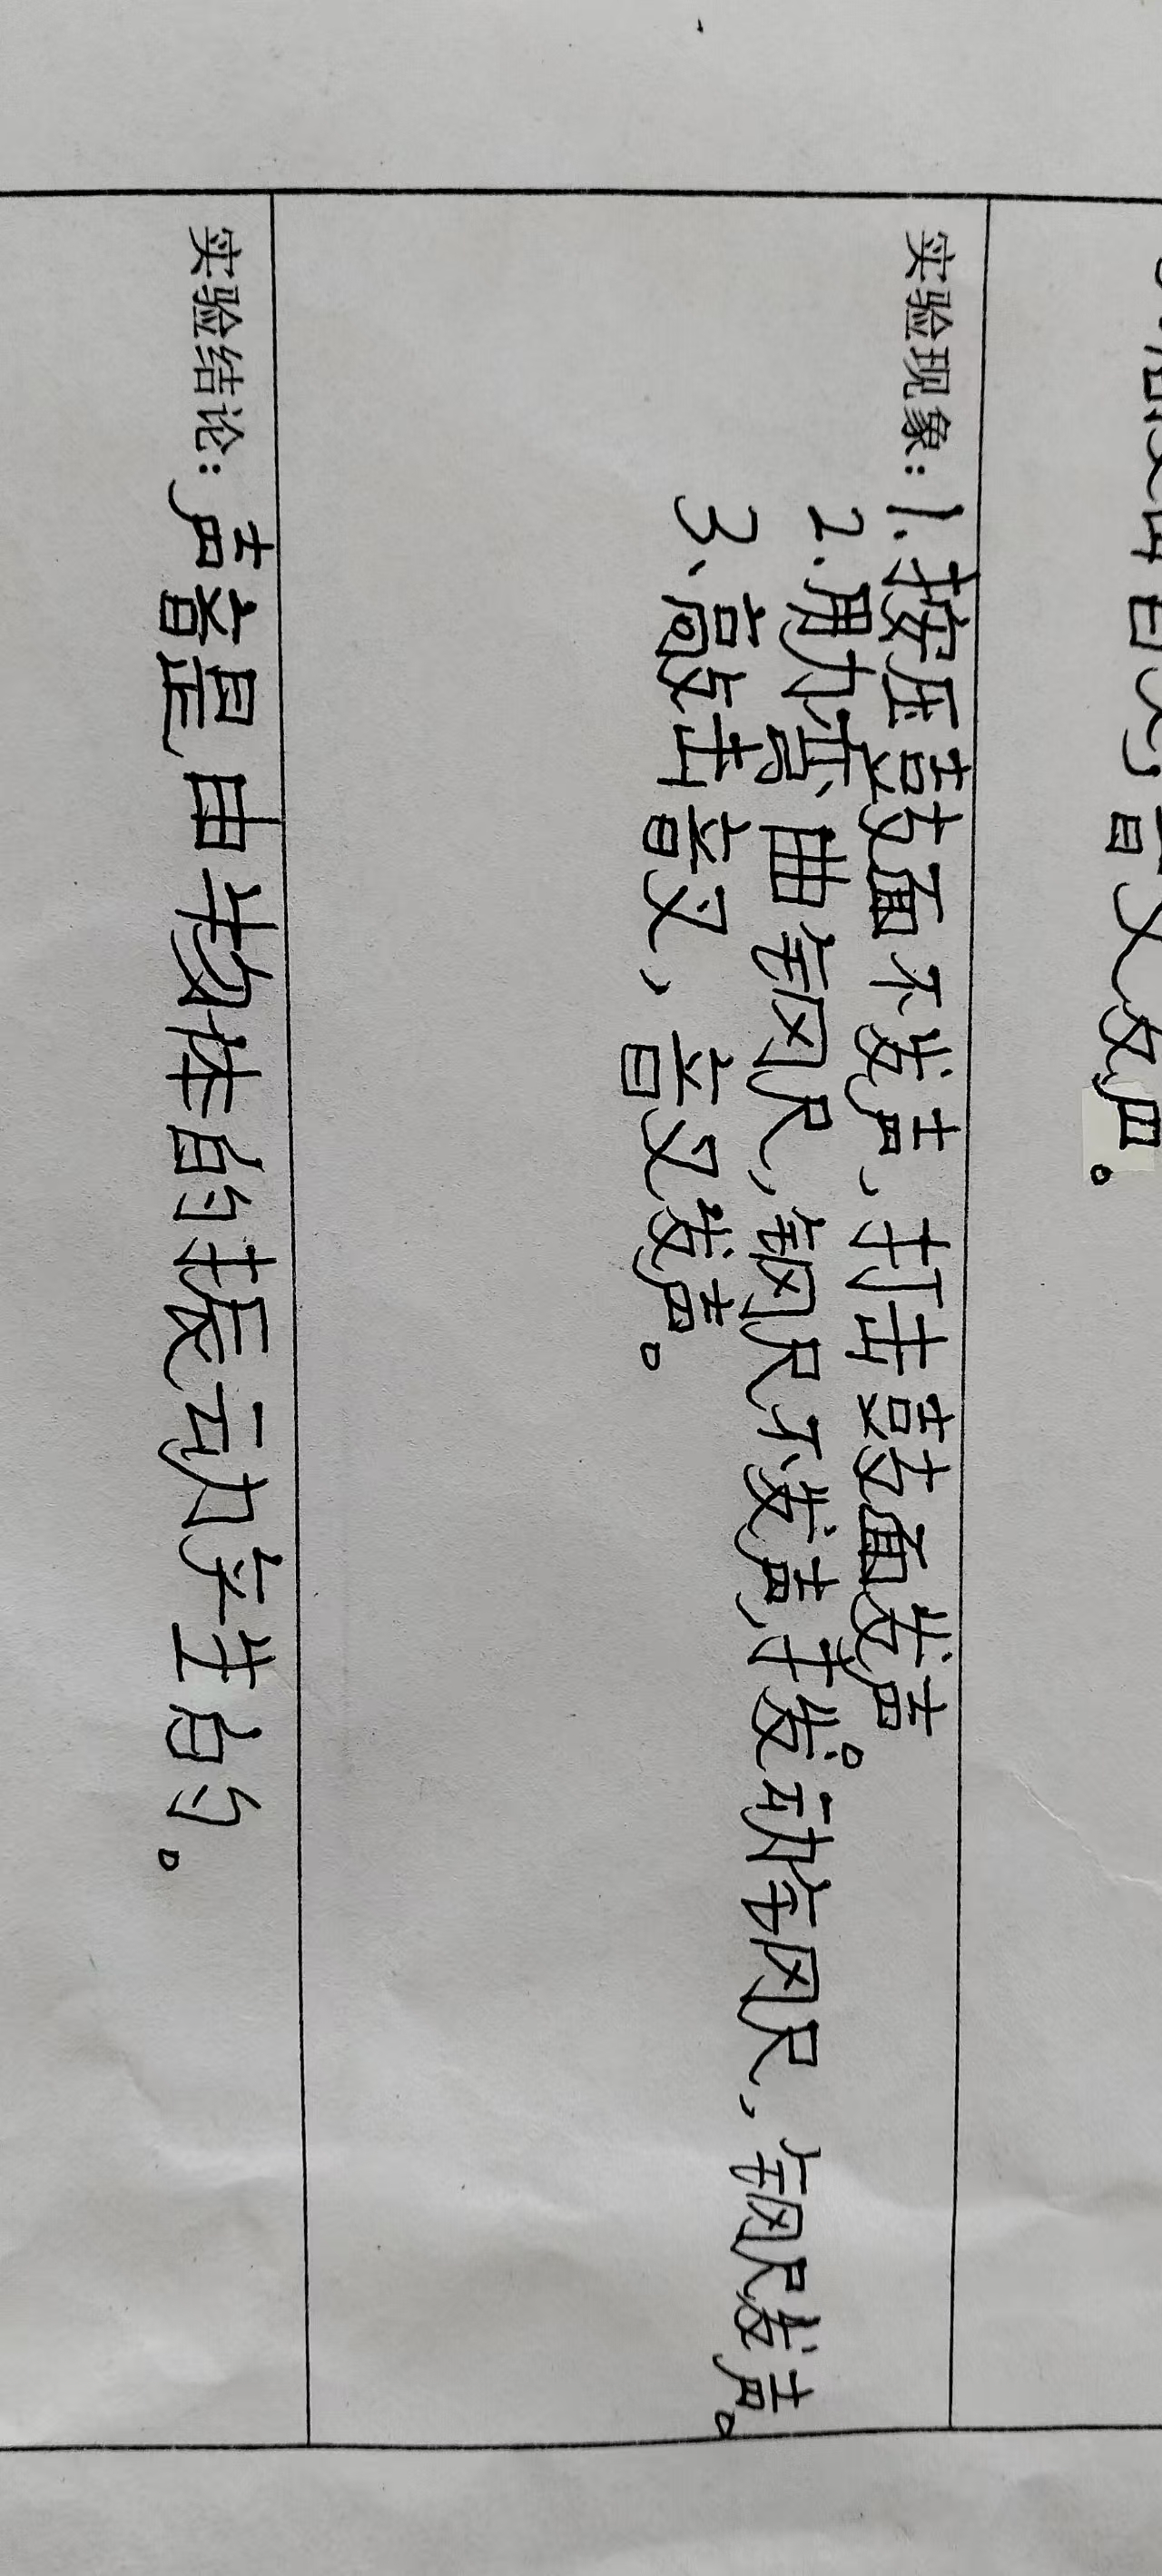 的音叉发声。
实验现象：1.按压鼓面不发声，打击鼓面发声。
2.用力弯曲钢尺，钢尺不发声，拨动钢尺，钢尺发声。
3、敲击音叉，音叉发声。
实验结论：声音是由物体的振动产生的。